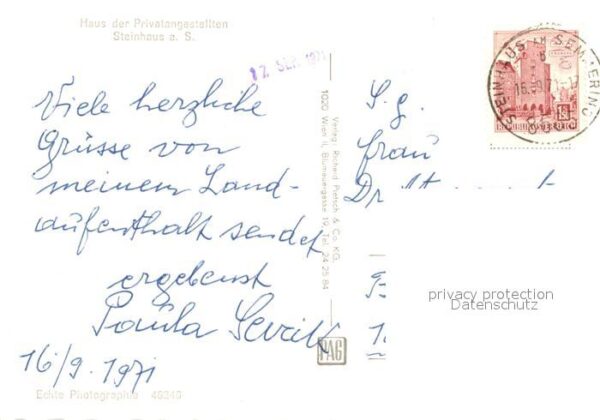 Haus der Privatangestellten
Steinhaus a. S.
17. SEP. 1971
Viele herzliche
Grüsse von
meinem Land-
aufenthalt sendet
ergebenst
Paula
16/9. 1971
Echte Photographie 46249
Verlag: Richard Pietsch & Co. KG.
1020 Wien II, Blumauergasse 19, Tel. 24 25 84
PAG
STEINHAUS AM SEMMERING
16.-9.71
REPUBLIK ÖSTERREICH
S. g.
Frau
Dr
privacy protection
Datenschutz